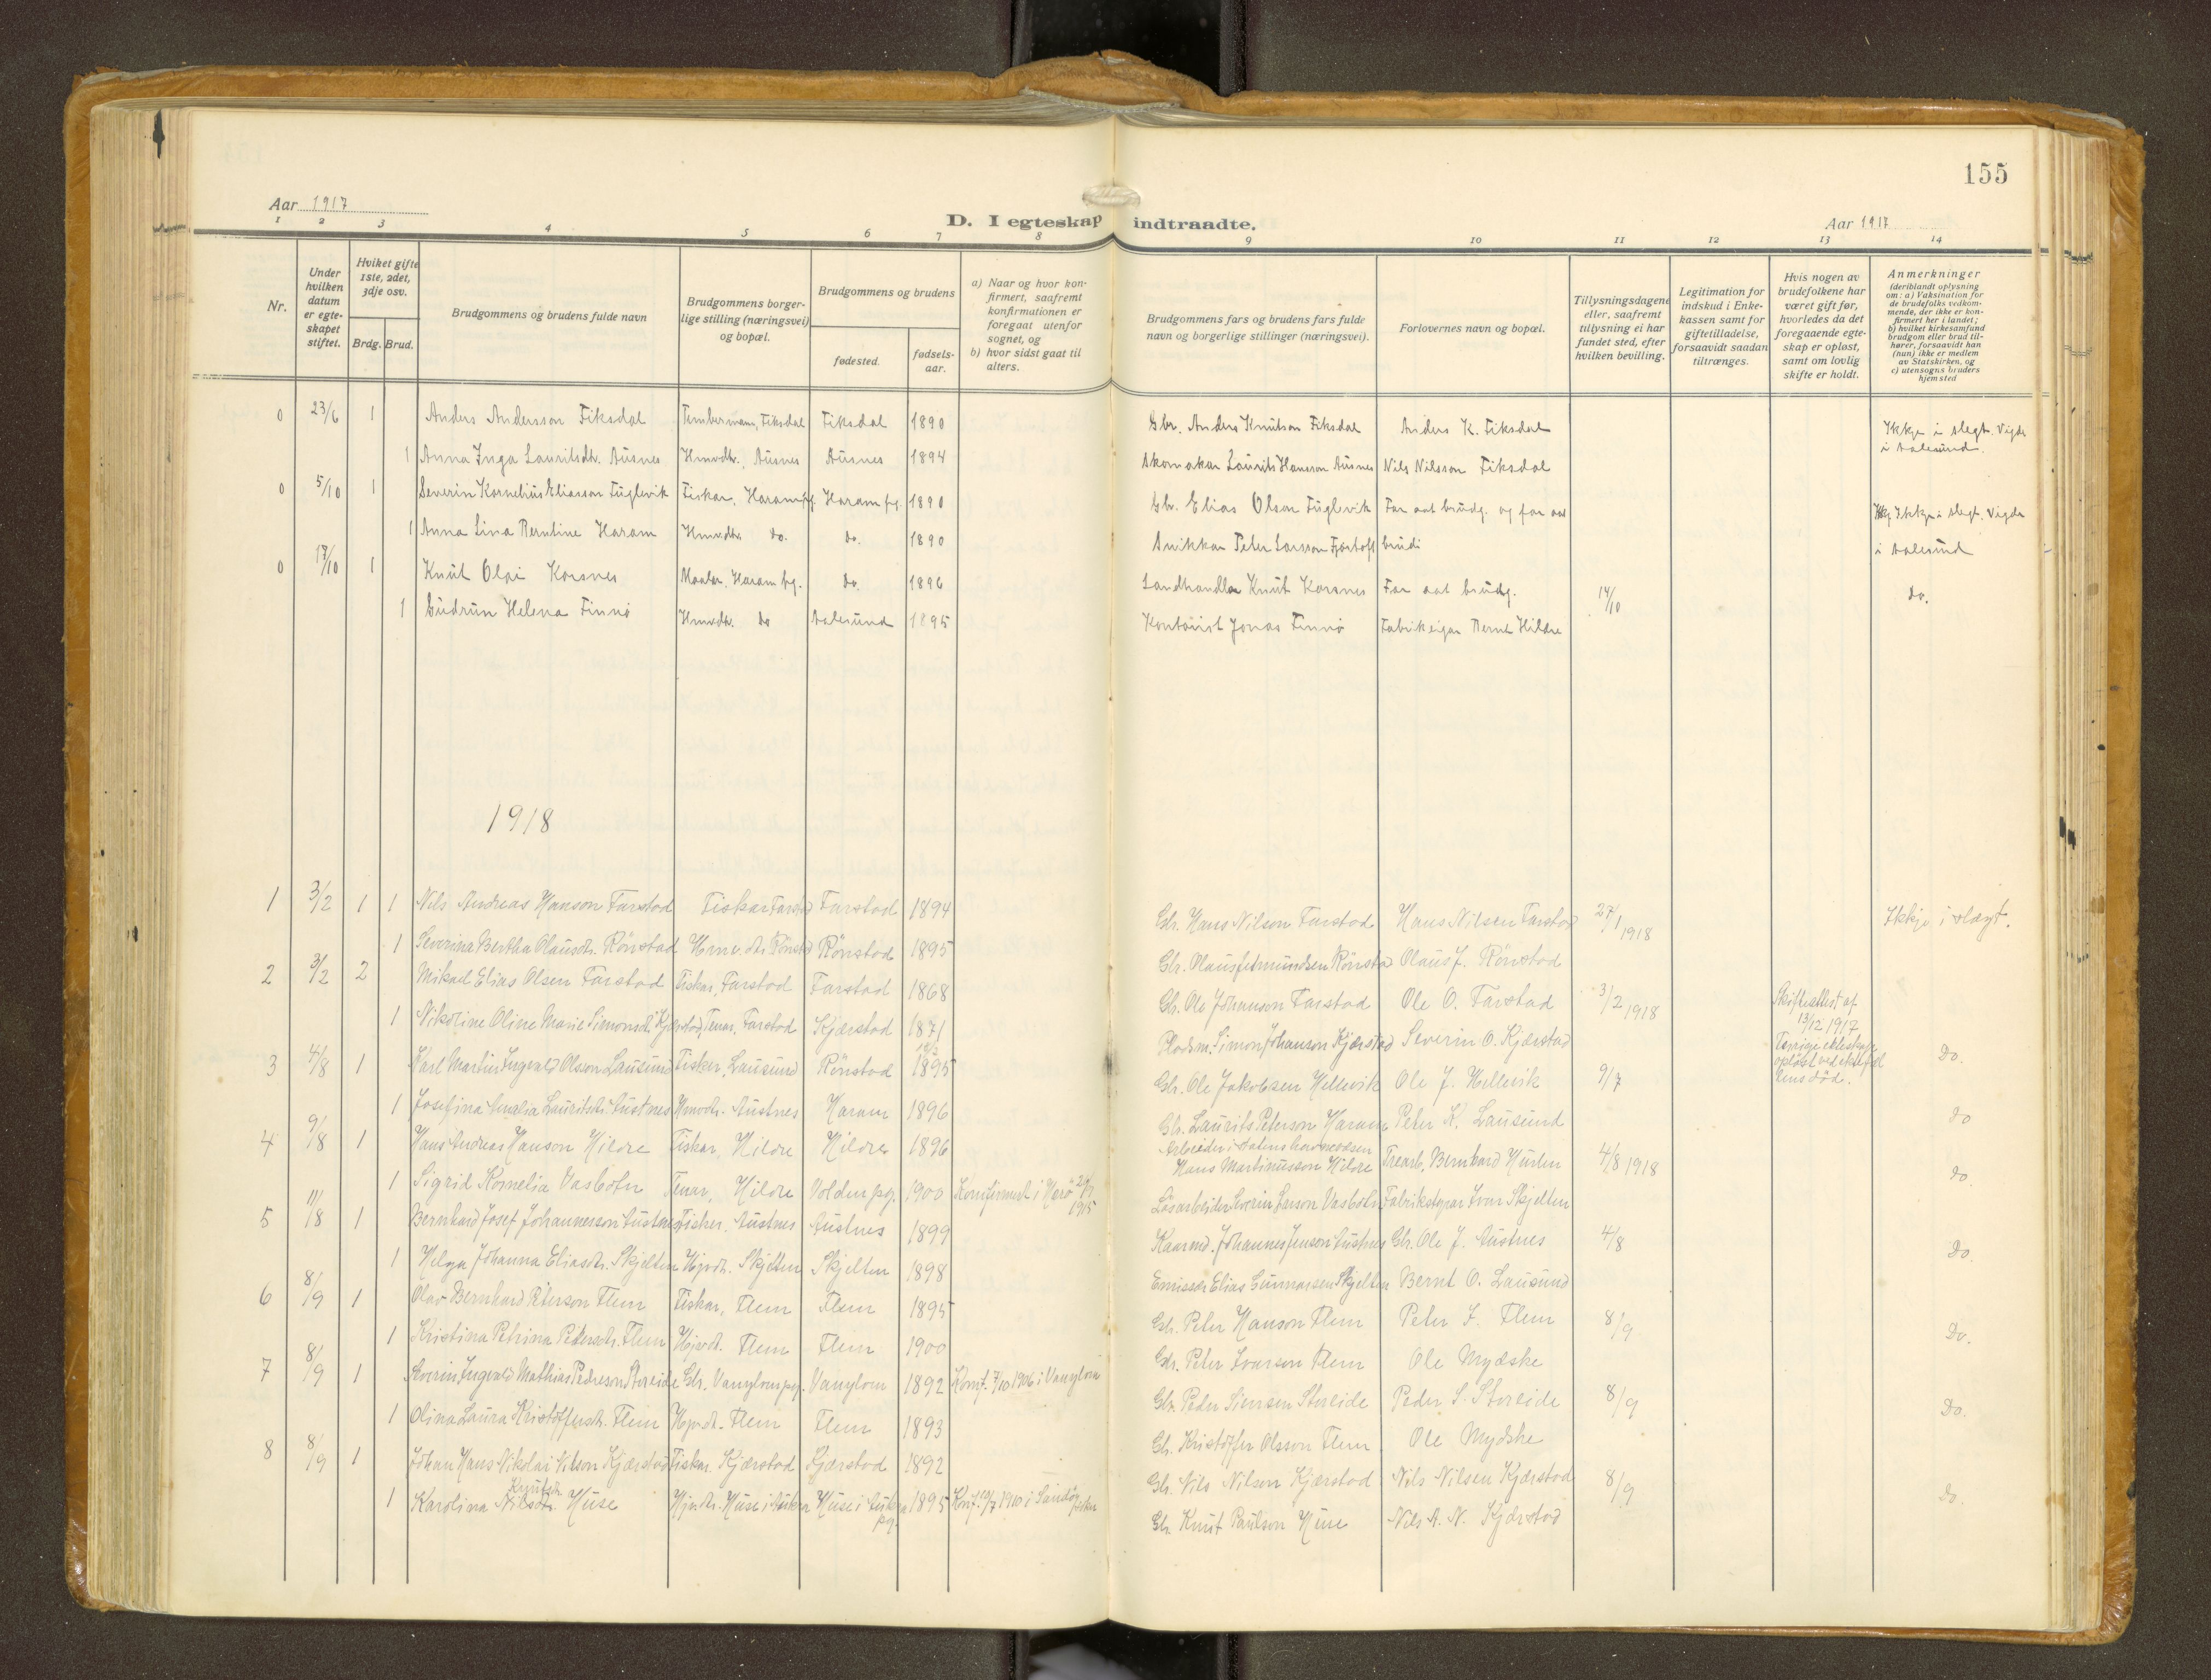 155
Aar 1917
D. I egteskap indtraadte.
Aar 1917
1 2 3 4 5 6 7 8 9 10 11 12 13 14
Nr.
Under hvilken datum er egteskapet stiftet.
Hvilket gifte 1ste, 2det, 3dje osv.
Brdg. Brud.
Brudgommens og brudens fulde navn
Brudgommens borgerlige stilling (næringsvei) og bopæl.
Brudgommens og brudens
fødested.
fødselsaar.
a) Naar og hvor konfirmert, saafremt konfirmationen er foregaat utenfor sognet, og
b) hvor sidst gaat til alters.
Brudgommens fars og brudens fars fulde navn og borgerlige stillinger (næringsvei).
Forlovernes navn og bopæl.
Tillysningsdagene eller, saafremt tillysning ei har fundet sted, efter hvilken bevilling.
Legitimation for indskud i Enkekassen samt for giftetilladelse, forsaavidt saadan tiltrænges.
Hvis nogen av brudefolkene har været gift før, hvorledes da det foregaaende egteskap er opløst, samt om lovlig skifte er holdt.
Anmerkninger (deriblandt oplysning om: a) Vaksination for de brudefolks vedkommende, der ikke er konfirmert her i landet; b) hvilket kirkesamfund brudgom eller brud tilhører, forsaavidt han (hun) ikke er medlem av Statskirken, og c) utensogns bruders hjemsted
0 23/6 1 Anders Andersson Fiksdal Tømbermann, Fiksdal Fiksdal 1890 Gbr. Anders Knutson Fiksdal Anders K. Fiksdal Ikkje i slegt. Vigde i Aalesund.
1 Anna Inga Lauritsdtr. Ausnes Hmvdtr., Ausnes Ausnes 1894 Skomakar Laurits Hansson Ausnes Nils Nilsson Fiksdal
0 5/10 1 Severin Kornelius Eliasson Fuglevik Fiskar, Haram pg. Haram pg. 1890 Gbr. Elias Olson Fuglevik Far aat brudg. og far aat Ikkje i slegt. Vigde
1 Anna Lina Berntine Haram Hmvdtr. do. do. 1890 Snikkar Peter Larsson Fjørtoft brudi i Aalesund
0 17/10 1 Knut Olai Korsnes Maalar, Haram pg. do. 1896 Landhandlar Knut Korsnes Far aat brudg. 14/10 do.
1 Gudrun Helena Finnø Hmvdtr. do Aalesund 1895 Kontorist Jonas Finnø Fabrikeigar Bernt Hildre
1918
1 3/2 1 1 Nils Andreas Hanson Farstad Fiskar Farstad Farstad 1894 Gbr. Hans Nilson Farstad Hans Nilsen Farstad 27/1 1918 Ikkje i slegt.
1 Severina Bertha Olausdtr. Rønstad Hmvdtr. Rønstad Rønstad 1895 Gbr. Olaus Jetmundsen Rønstad Olaus J. Rønstad
2 3/2 2 Mikael Elias Olsen Farstad Fiskar, Farstad Farstad 1868 Gbr. Ole Johanson Farstad Ole O. Farstad 3/2 1918 Skifteattest af 13/12 1917
1 Nikoline Oline Marie Simonsdtr. Kjærstad Tenar, Farstad Kjærstad 1871 Plodsm. Simon Johanson Kjærstad Severin O. Kjærstad Do.
3 4/8 1 Karl Martin Ingvald Olsson Lausund Fisker, Lausund Rønstad 1895 Gbr. Ole Jakobsen Hellevik Ole J. Hellevik 9/7
1 Josefina Amalia Lauritsdtr. Austnes Hmvdtr. Austnes Haram 1896 Gbr. Laurits Peterson Haram Peter K. Lausund Do
4 9/8 1 Hans Andreas Hanson Hildre Fiskar, Hildre Hildre 1896 Hans Martinusson Hildre Trearb. Bernhard Hurlen 4/8 1918
1 Sigrid Kornelia Vasbotn Tenar, Hildre Volden pg. 1900 Konfirmert i Herø 1915 Løsarbeider Severin Larson Vasbotn Fabrikeigar Ivar Skjelten Do.
5 11/8 1 Bernhard Josef Johannesson Austnes Fisker, Austnes Austnes 1899 Kaarmd. Johannes Jenson Austnes Gbr. Ole J. Austnes 4/8
1 Helga Johanna Eliasdtr. Skjelten Hjvdtr. Skjelten Skjelten 1898 Emissær Elias Gunnarsen Skjelten Bernt O. Lausund Do.
6 8/9 1 Olav Bernhard Peterson Flem Fiskar, Flem Flem 1895 Gbr. Peter Hanson Flem Peter J. Flem 8/9
1 Kristina Petrina Petersdtr. Flem Hjvdt. Flem Flem 1900 Gbr. Peter Ivarson Flem Ole Mydske Do.
7 8/9 1 Severin Ingvald Mathias Pederson Storeide Gbr. Vanylven pg. Vanylven 1892 Konf. 7/10 1906 i Vanylven Gbr. Peder Siversen Storeide Peder S. Storeide 8/9
1 Olina Laura Kristoffersdtr. Flem Hjvdt. Flem Flem 1893 Gbr. Kristoffer Olsson Flem Ole Mydske Do.
8 8/9 1 Johan Hans Nikolai Nilson Kjærstad Fiskar. Kjærstad Kjærstad 1892 Gbr. Nils Nilson Kjærstad Nils Nilsen Kjærstad 8/9
1 Karolina Knutsdtr. Huse Hjvdtr. Huse i Aukra Huse i Aukra pg. 1895 Konf. 10/7 1910 i Sandøy Gbr. Knut Paulson Huse Nils A. N. Kjærstad Do.